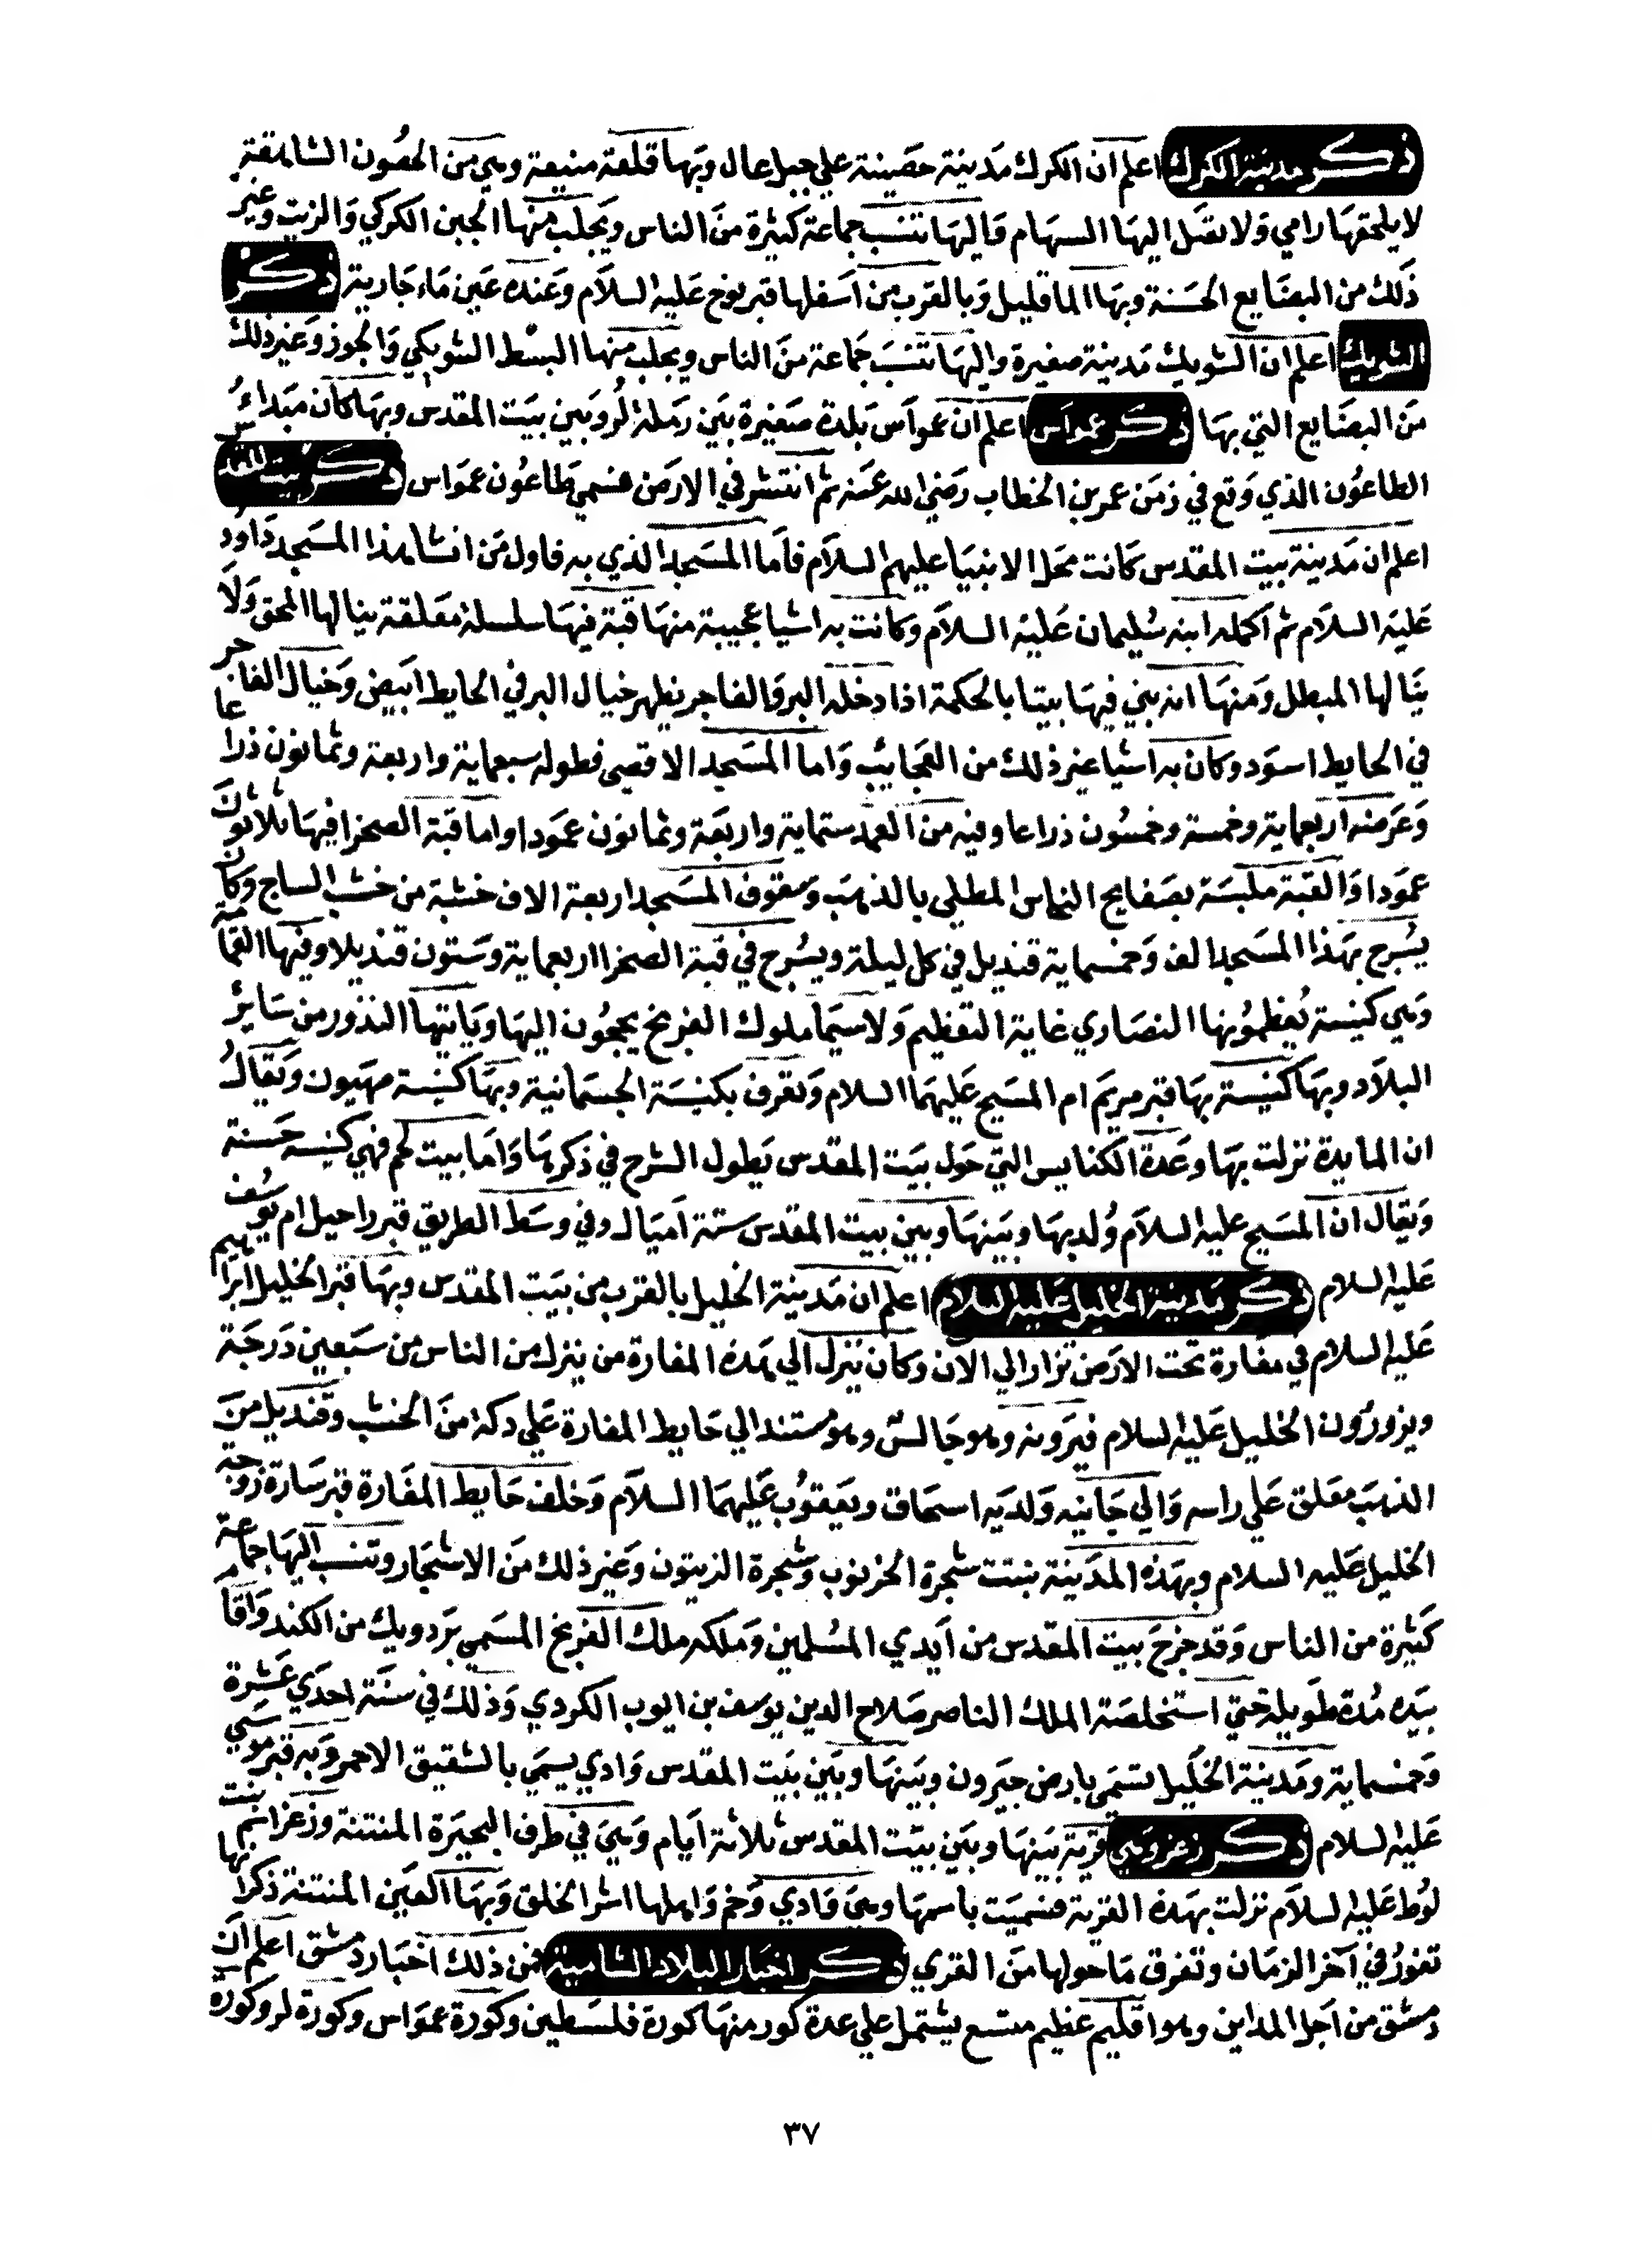 ذكر مدينة الكرك اعلم ان الكرك مدينة حصينة علي جبل عال وبها قلعة منيعة وهي من الحصون الشاهقة
لا يلحقها رامي ولا تصل اليها السهام واليها تنسب جماعة كثيرة من الناس ويجلب منها الجبن الكركي والزيت وغير
ذلك من البضايع الحسنة وبها الما قليل وبالقرب من اسفلها قبر نوح عليه السلام وعنده عين ماء جارية ذكر
الشوبك اعلم ان الشوبك مدينة صغيرة واليها تنسب جماعة من الناس ويجلب منها البسط الشوبكي والجوز وغير ذلك
من البضايع التي بها ذكر عمواس اعلم ان عمواس بلدة صغيرة بين رملة لد وبين بيت المقدس وبها كان مبداء
الطاعون الذي وقع في زمن عمر بن الخطاب رضي الله عنه ثم انتشر في الارض فسمي طاعون عمواس ذكر بيت المقدس
اعلم ان مدينة بيت المقدس كانت محل الانبيا عليهم السلام فاما المسجد الذي به فاول من انشا هذا المسجد داود
عليه السلام ثم اكمله ابنه سليمان عليه السلام وكانت به اشيا عجيبة منها قبة فيها سلسلة معلقة ينالها المحق ولا
ينالها المبطل ومنها انه بني فيها بيتا بالحكمة اذا دخله البر والفاجر يظهر خيال البر في الحايط ابيض وخيال الفاجر
في الحايط اسود وكان به اشيا غير ذلك من العجايب واما المسجد الاقصي فطوله سبعماية واربعة وثمانون ذراعا
وعرضه اربعماية وخمسة وخمسون ذراعا وفيه من العمد ستماية واربعة وثمانون عمودا واما قبة الصخرا فيها ثلاثون
عمودا والقبة ملبسة بصفايح النحاس المطلي بالذهب وسقوف المسجد اربعة الاف خشبة من خشب الساج وكان
يسرج بهذا المسجد الف وخمسماية قنديل في كل ليلة ويسرج في قبة الصخرا اربعماية وستون قنديلا وفيها القمامة
وهي كنيسة يعظمونها النصاري غاية التعظيم ولا سيما ملوك الفرنج يحجون اليها وياتيها النذور من ساير
البلاد وبها كنيسة بها قبر مريم ام المسيح عليهما السلام وتعرف بكنيسة الجسمانية وبها كنيسة صهيون ويقال
ان المايدة نزلت بها وعدة الكنايس التي حول بيت المقدس يطول الشرح في ذكرها واما بيت لحم فهي كنيسه حسنة
ويقال ان المسيح عليه السلام ولد بها وبينها وبين بيت المقدس ستة اميال وفي وسط الطريق قبر راحيل ام يوسف
عليه السلام ذكر مدينة الخليل عليه السلام اعلم ان مدينة الخليل بالقرب من بيت المقدس وبها قبر الخليل ابراهيم
عليه السلام في مغارة تحت الارض تزار الي الان وكان ينزل الي هذه المغارة من ينزل من الناس من سبعين درجة
ويزورون الخليل عليه السلام فيرونه وهو جالس وهو مستند الي حايط المغارة علي دكة من الخشب وقنديل من
الذهب معلق علي راسه والي جانبه ولديه اسحاق ويعقوب عليهما السلام وخلف حايط المغارة قبر سارة زوجة
الخليل عليه السلام وبهذه المدينة نبتت شجرة الخرنوب وشجرة الزيتون وغير ذلك من الاشجار وتنسب اليها جماعة
كثيرة من الناس وقد خرج بيت المقدس من ايدي المسلمين وملكه ملك الفرنج المسمي بردويك من الكند واقام
بيده مدة طويلة حتي استخلصة الملك الناصر صلاح الدين يوسف بن ايوب الكردي وذلك في سنة احدي عشرة
وخمسماية ومدينة الخليل تسمي بارض حيرون وبينها وبين بيت المقدس وادي يسمي بالشقيق الاحمر وبه قبر موسي
عليه السلام ذكر زغر وهي قرية بينها وبين بيت المقدس ثلاثة ايام وهي في طرف البحيرة المنتنة وزغر اسم بنت
لوط عليه السلام نزلت بهذه القرية فسميت باسمها وهي وادي وخم واهلها اشر الخلق وبها العين المنتنة ذكر انها
تغور في آخر الزمان وتفرق ما حولها من القري ذكر اخبار البلاد الشامية فمن ذلك اخبار دمشق اعلم ان
دمشق من اجل المداين وهو اقليم عظيم متسع يشتمل علي عدة كور منها كورة فلسطين وكورة عمواس وكورة لد وكورة
٣٧